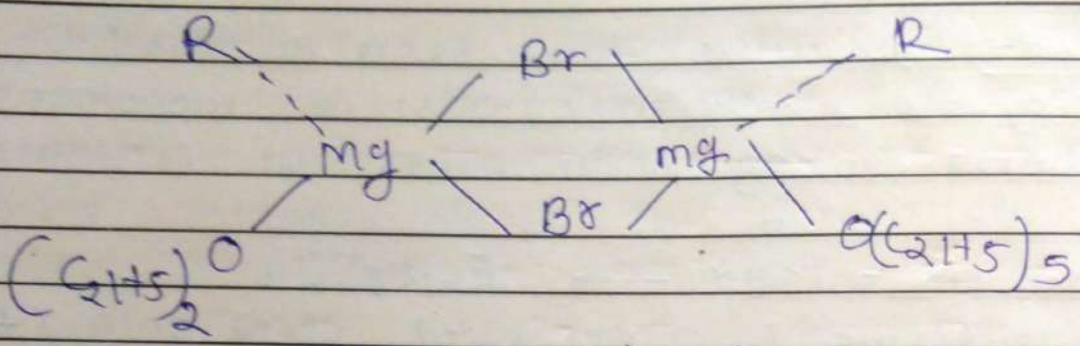 R Br R
Mg mg
(C2H5)2 O Br O(C2H5)5